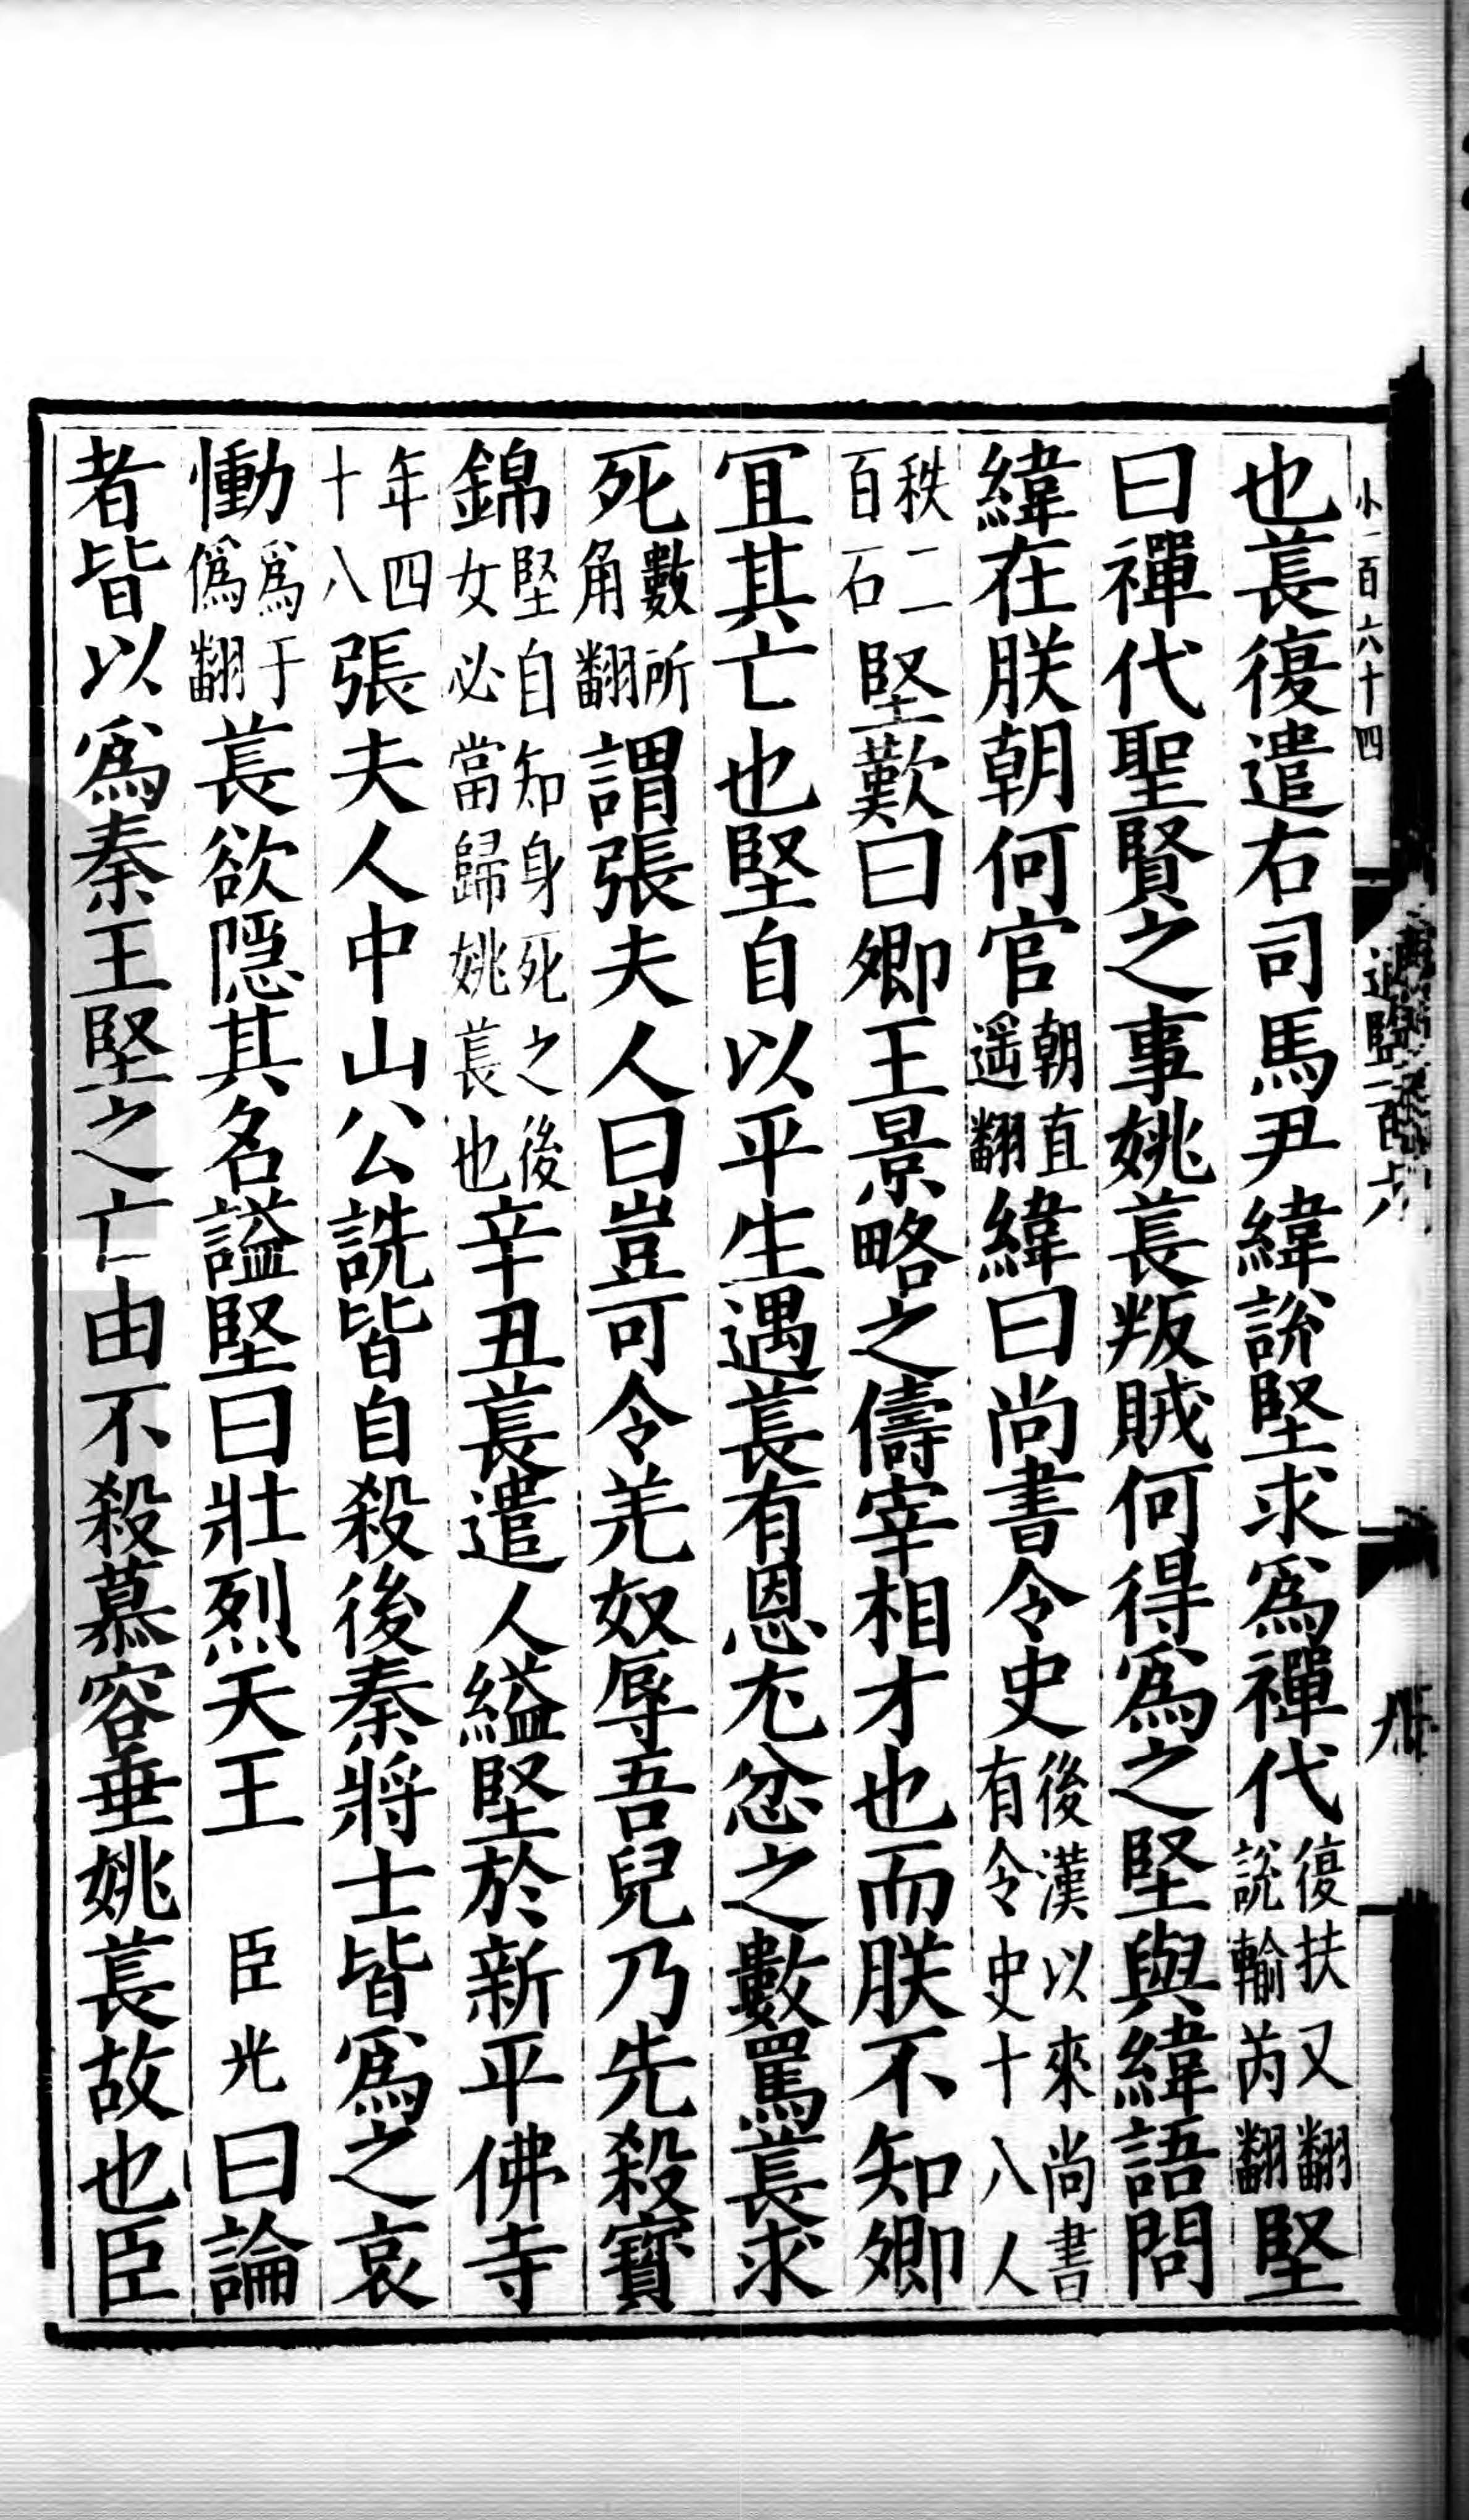 小一百六十四
也萇復遣右司馬尹緯說堅求爲禪代復扶又翻說輸芮翻堅
曰禪代聖賢之事姚萇叛賊何得爲之堅與緯語問
緯在朕朝何官朝直遥翻緯曰尚書令史後漢以來尚書有令史十八人
秩二百石堅歎曰卿王景略之儔宰相才也而朕不知卿
冝其亡也堅自以平生遇萇有恩尤忿之數罵萇求
死數所角翻謂張夫人曰豈可令羌奴辱吾兒乃先殺寶
錦堅自知身死之後女必當歸姚萇也辛丑萇遣人縊堅於新平佛寺
年四十八張夫人中山公詵皆自殺後秦將士皆爲之哀
慟爲于僞翻萇欲隱其名謚堅曰壯烈天王　臣光曰論
者皆以爲秦王堅之亡由不殺慕容垂姚萇故也臣